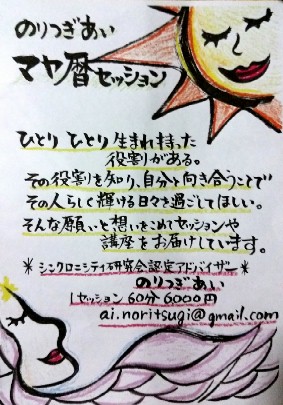 のりつぎあい
マヤ暦セッション
ひとり ひとり 生まれ持った
役割がある。
その役割を知り、自分と向き合うことで
その人らしく輝ける日々を過ごしてほしい。
そんな願いと想いをこめてセッションや
講座をお届けしています。
*シンクロニシティ研究会認定アドバイザー*
のりつぎあい
1セッション 60分 6000円
ai.noritsugi@gmail.com